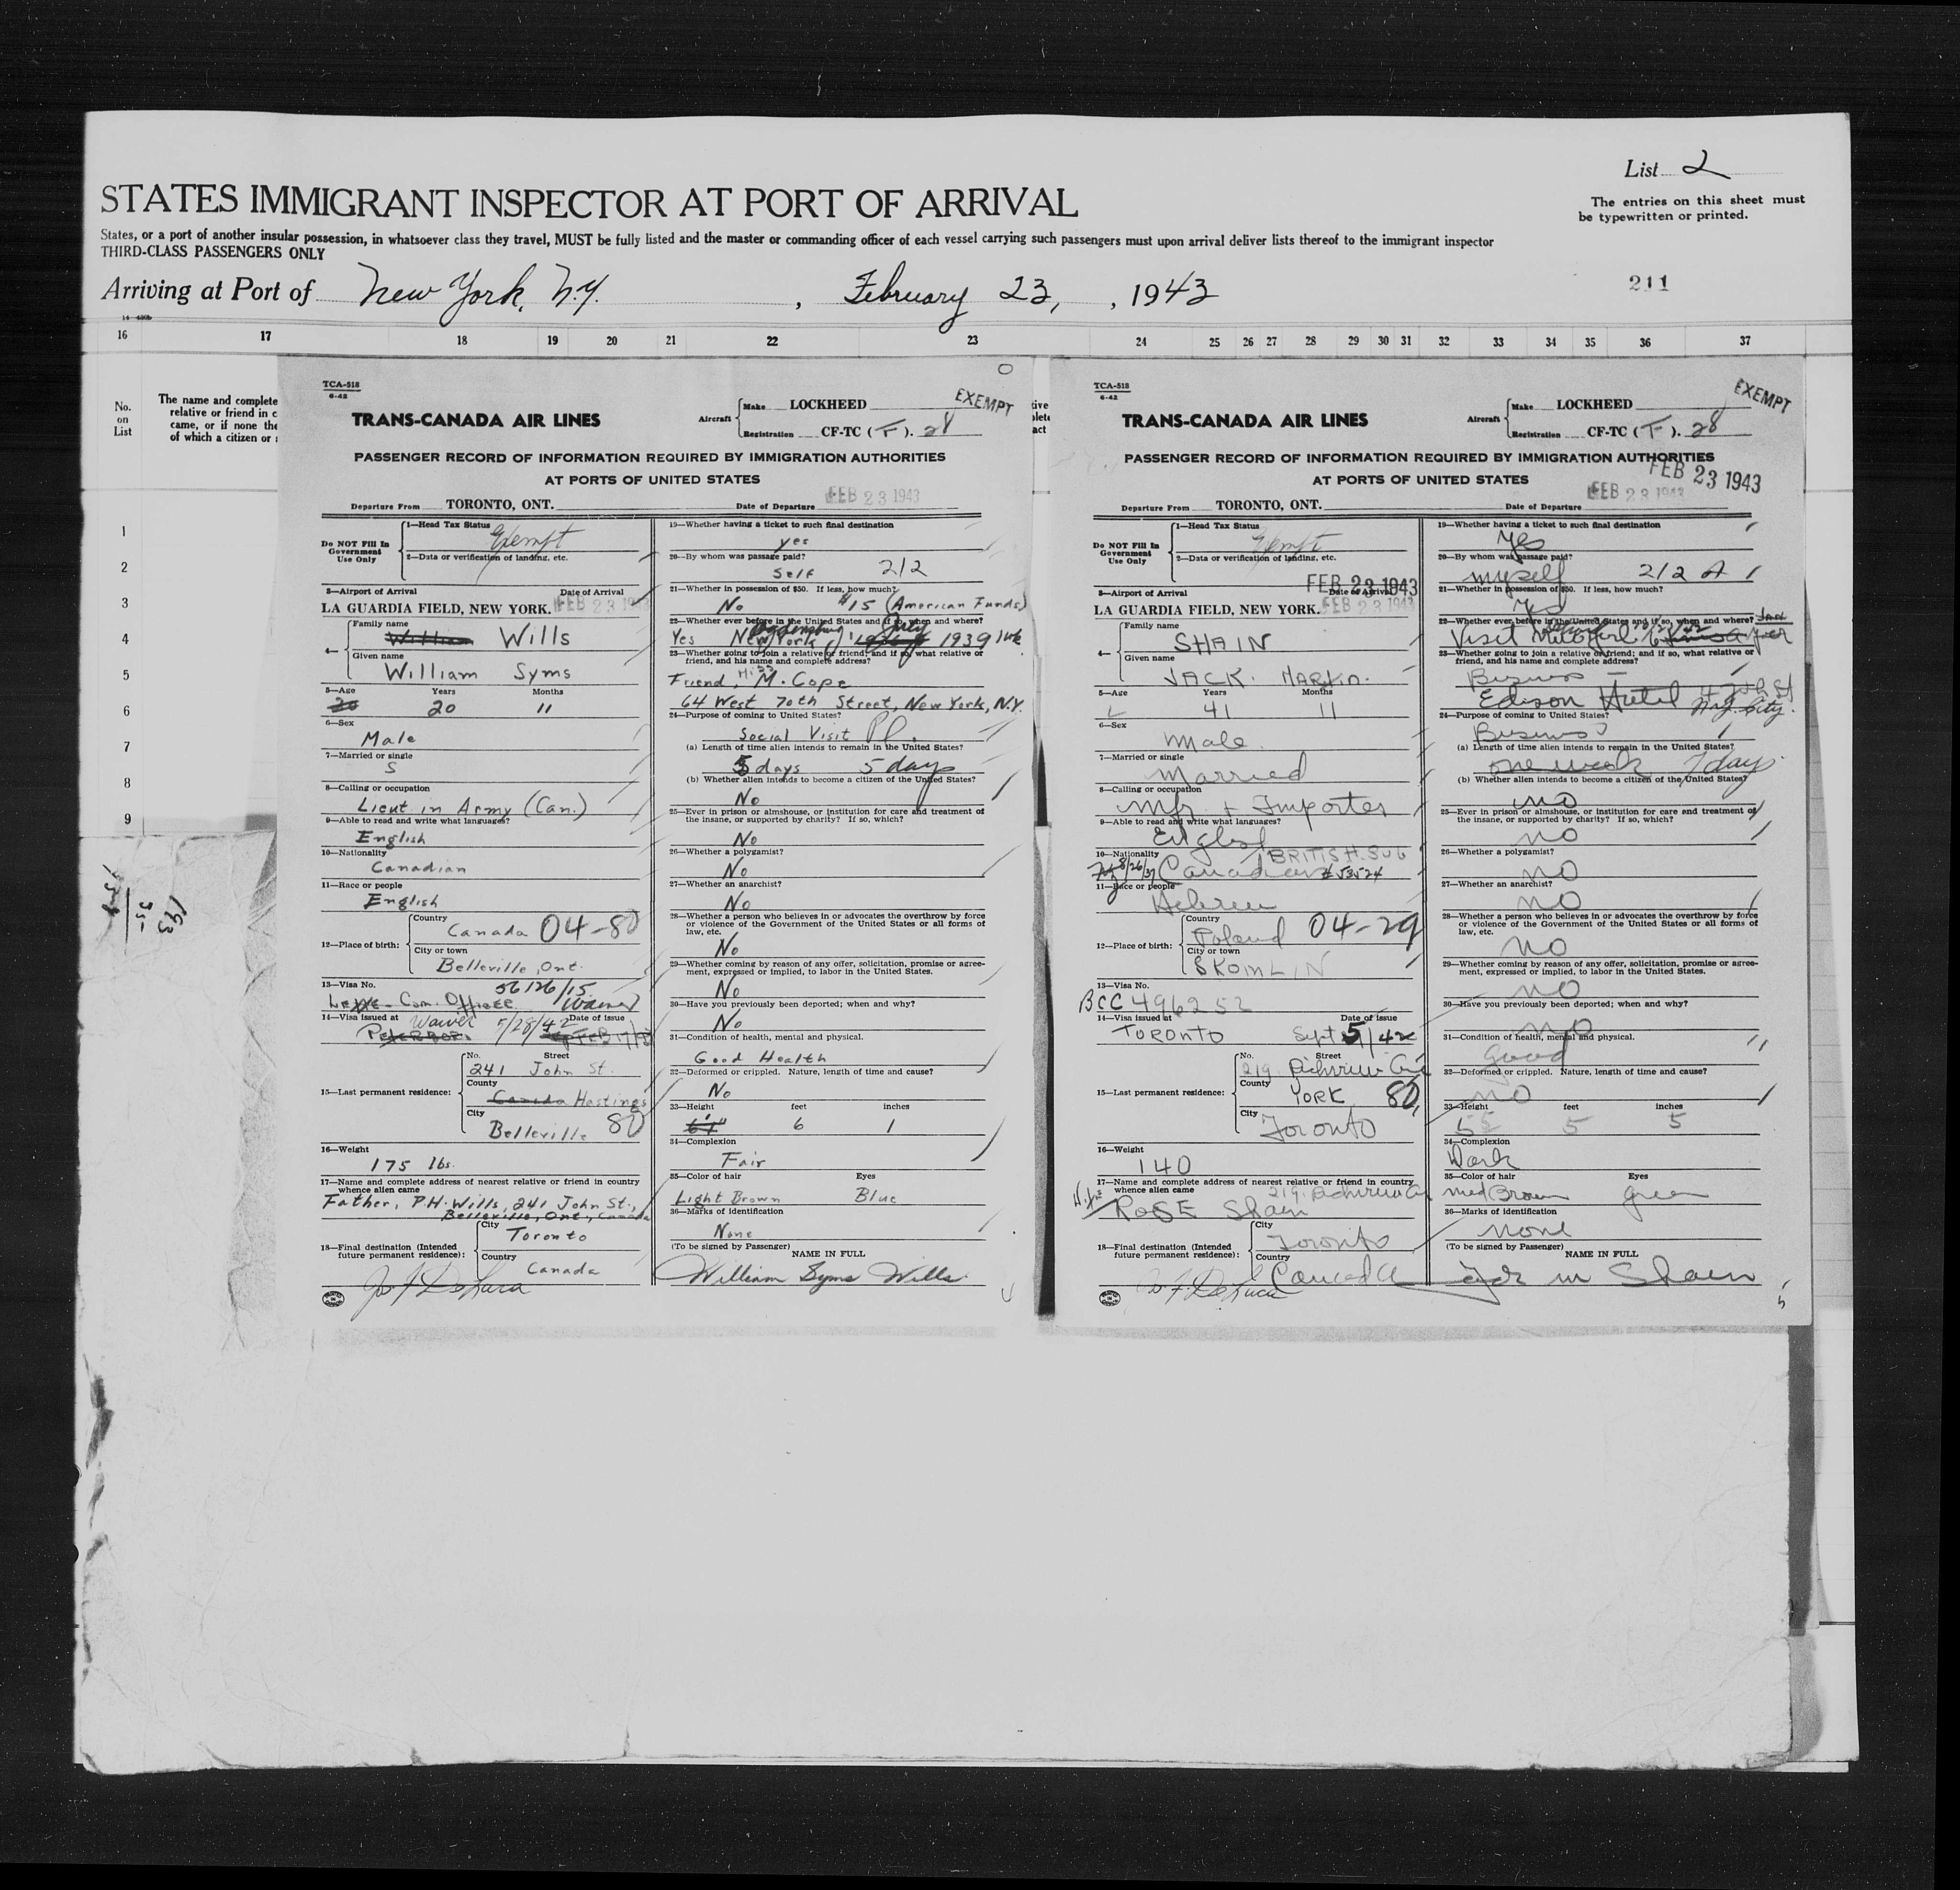 List 2
STATES IMMIGRANT INSPECTOR AT PORT OF ARRIVAL
The entries on this sheet must
be typewritten or printed.
States, or a port of another insular possession, in whatsoever class they travel, MUST be fully listed and the master or commanding officer of each vessel carrying such passengers must upon arrival deliver lists thereof to the immigrant inspector
THIRD-CLASS PASSENGERS ONLY
Arriving at Port of New York, N.Y. , February 23, , 1943
211
16 17 18 19 20 21 22 23 24 25 26 27 28 29 30 31 32 33 34 35 36 37
No.
on
List
The name and complete
relative or friend in c
came, or if none the
of which a citizen or
1
2
3
4
5
6
7
8
9
193
TCA-518
6-42
EXEMPT
TRANS-CANADA AIR LINES
Aircraft Make LOCKHEED
Registration CF-TC (T). 28
PASSENGER RECORD OF INFORMATION REQUIRED BY IMMIGRATION AUTHORITIES
AT PORTS OF UNITED STATES
FEB 23 1943
Departure From TORONTO, ONT. Date of Departure
Do NOT Fill In
Government
Use Only
1—Head Tax Status
Exempt
2—Data or verification of landing, etc.
3—Airport of Arrival Date of Arrival
LA GUARDIA FIELD, NEW YORK. FEB 23 1943
4— Family name
William Wills
Given name
William Syms
5—Age Years Months
20 20 11
6—Sex
Male
7—Married or single
S
8—Calling or occupation
Lieut in Army (Can.)
9—Able to read and write what languages?
English
10—Nationality
Canadian
11—Race or people
English
12—Place of birth:
Country
Canada 04-80
City or town
Belleville, Ont.
13—Visa No. 56126/15
Com. Officer Waiver
14—Visa issued at Waiver 5/28/42 Date of issue
15—Last permanent residence:
No. Street
241 John St.
County
Canada Hastings
City
Belleville 80
16—Weight
175 lbs.
17—Name and complete address of nearest relative or friend in country
whence alien came
Father, P.H. Wills, 241 John St.,
Belleville, Ont., Canada
18—Final destination (Intended
future permanent residence):
City
Toronto
Country
Canada
19—Whether having a ticket to such final destination
yes
20—By whom was passage paid?
Self 212
21—Whether in possession of $50. If less, how much?
No $15 (American Funds)
22—Whether ever before in the United States and if so, when and where?
Yes New York 1939 1wk
23—Whether going to join a relative or friend; and if so, what relative or
friend, and his name and complete address?
Friend, Miss M. Cope
64 West 70th Street, New York, N.Y.
24—Purpose of coming to United States?
Social Visit Pl.
(a) Length of time alien intends to remain in the United States?
5 days 5 days
(b) Whether alien intends to become a citizen of the United States?
No
25—Ever in prison or almshouse, or institution for care and treatment of
the insane, or supported by charity? If so, which?
No
26—Whether a polygamist?
No
27—Whether an anarchist?
No
28—Whether a person who believes in or advocates the overthrow by force
or violence of the Government of the United States or all forms of
law, etc.
No
29—Whether coming by reason of any offer, solicitation, promise or agree-
ment, expressed or implied, to labor in the United States.
No
30—Have you previously been deported; when and why?
No
31—Condition of health, mental and physical.
Good Health
32—Deformed or crippled. Nature, length of time and cause?
No
33—Height feet inches
6 1
34—Complexion
Fair
35—Color of hair Eyes
Light Brown Blue
36—Marks of identification
None
(To be signed by Passenger) NAME IN FULL
William Syms Wills
TCA-518
6-42
EXEMPT
TRANS-CANADA AIR LINES
Aircraft Make LOCKHEED
Registration CF-TC (T). 28
PASSENGER RECORD OF INFORMATION REQUIRED BY IMMIGRATION AUTHORITIES
AT PORTS OF UNITED STATES
FEB 23 1943
FEB 23 1943
Departure From TORONTO, ONT. Date of Departure
Do NOT Fill In
Government
Use Only
1—Head Tax Status
Exempt
2—Data or verification of landing, etc.
FEB 23 1943
3—Airport of Arrival Date of Arrival
LA GUARDIA FIELD, NEW YORK. FEB 23 1943
4— Family name
SHAIN
Given name
JACK.
5—Age Years Months
41 11
6—Sex
Male.
7—Married or single
Married
8—Calling or occupation
Mfr. + Importer
9—Able to read and write what languages?
English
10—Nationality BRITISH. SUB
8/26/37 Canadian # 53524
11—Race or people
Hebrew
12—Place of birth:
Country
Poland 04-29
City or town
13—Visa No.
BCC 496252
14—Visa issued at Date of issue
TORONTO Sept 5/42
15—Last permanent residence:
No. Street
219
County
YORK 80
City
Toronto
16—Weight
140
17—Name and complete address of nearest relative or friend in country
whence alien came 219.
Wife ROSE Shain
18—Final destination (Intended
future permanent residence):
City
Toronto
Country
Canada
19—Whether having a ticket to such final destination
Yes
20—By whom was passage paid?
myself 212 A
21—Whether in possession of $50. If less, how much?
Yes
22—Whether ever before in the United States and if so, when and where?
Visit
23—Whether going to join a relative or friend; and if so, what relative or
friend, and his name and complete address?
Business
Edison Hotel N.Y. City.
24—Purpose of coming to United States?
Business
(a) Length of time alien intends to remain in the United States?
one week 7 days
(b) Whether alien intends to become a citizen of the United States?
no
25—Ever in prison or almshouse, or institution for care and treatment of
the insane, or supported by charity? If so, which?
no
26—Whether a polygamist?
no
27—Whether an anarchist?
no
28—Whether a person who believes in or advocates the overthrow by force
or violence of the Government of the United States or all forms of
law, etc.
no
29—Whether coming by reason of any offer, solicitation, promise or agree-
ment, expressed or implied, to labor in the United States.
no
30—Have you previously been deported; when and why?
no
31—Condition of health, mental and physical.
good
32—Deformed or crippled. Nature, length of time and cause?
no
33—Height feet inches
5 5
34—Complexion
Dark
35—Color of hair Eyes
Med Brown green
36—Marks of identification
none
(To be signed by Passenger) NAME IN FULL
Jack M Shain